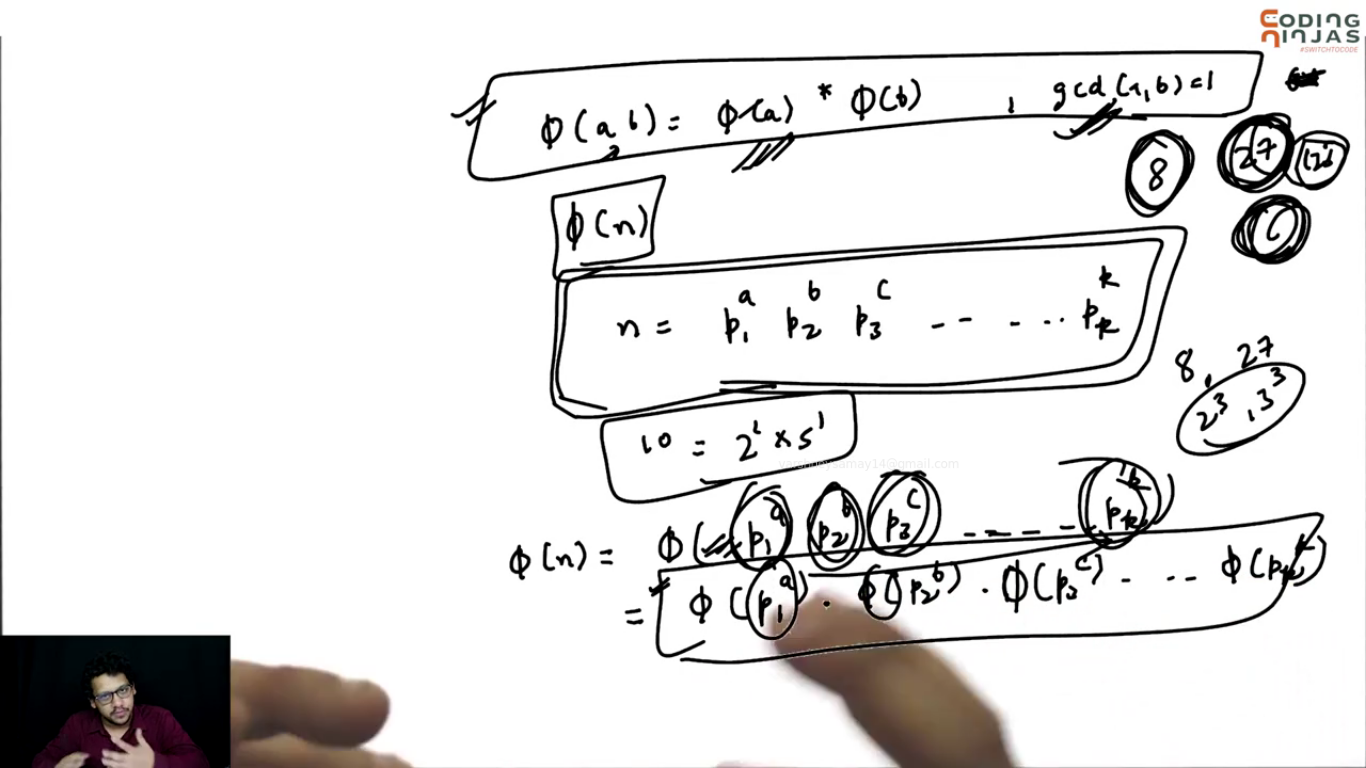 CODING
NINJAS
#SWITCHTOCODE
ϕ(a,b) = ϕ(a) * ϕ(b) , gcd(a,b)=1
8 27
6
ϕ(n)
n = p₁ᵃ p₂ᵇ p₃ᶜ -- - ... pₖᵏ
8, 27
2³, 3³
10 = 2¹ × 5¹
varshneysamay14@gmail.com
ϕ(n) = ϕ( p₁ᵃ p₂ᵇ p₃ᶜ ----- pₖᵏ )
= ϕ(p₁ᵃ) . ϕ(p₂ᵇ) . ϕ(p₃ᶜ) - - -- ϕ(pₖᵏ)